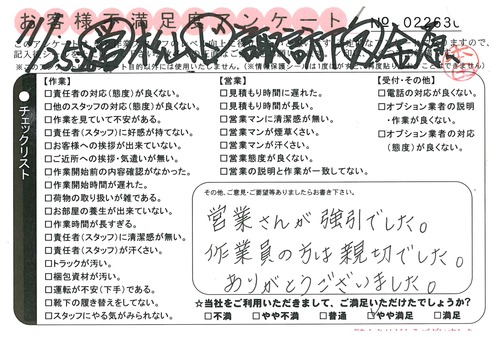 お客様不満足度アンケート No. 02263
【作業】
□責任者の対応(態度)が良くない。
□他のスタッフの対応(態度)が良くない。
□作業を見ていて不安がある。
□責任者(スタッフ)に好感が持てない。
□お客様への挨拶が出来ていない。
□ご近所への挨拶・気遣いが無い。
□作業開始前の内容確認がなかった。
□作業開始時間が遅れた。
□荷物の取り扱いが雑である。
□お部屋の養生が出来ていない。
□作業時間が長すぎる。
□責任者(スタッフ)に清潔感が無い。
□責任者(スタッフ)が汗くさい。
□トラックが汚い。
□梱包資材が汚い。
□運転が不安(下手)である。
□靴下の履き替えをしてない。
□スタッフにやる気がみられない。
【営業】
□見積もり時間に遅れた。
□見積もり時間が長い。
□営業マンに清潔感が無い。
□営業マンが煙草くさい。
□営業マンが汗くさい。
□営業態度が良くない。
□営業の説明と作業が一致してない。
【受付・その他】
□電話の対応が良くない。
□オプション業者の説明
・作業が良くない。
□オプション業者の対応
(態度)が良くない。
チェックリスト
その他、ご意見・ご要望等ありましたらお書き下さい。
営業さんが強引でした。
作業員の方は親切でした。
ありがとうございました。
☆当社をご利用いただきまして、ご満足いただけたでしょうか?
□不満 □やや不満 □普通 □やや満足 □満足